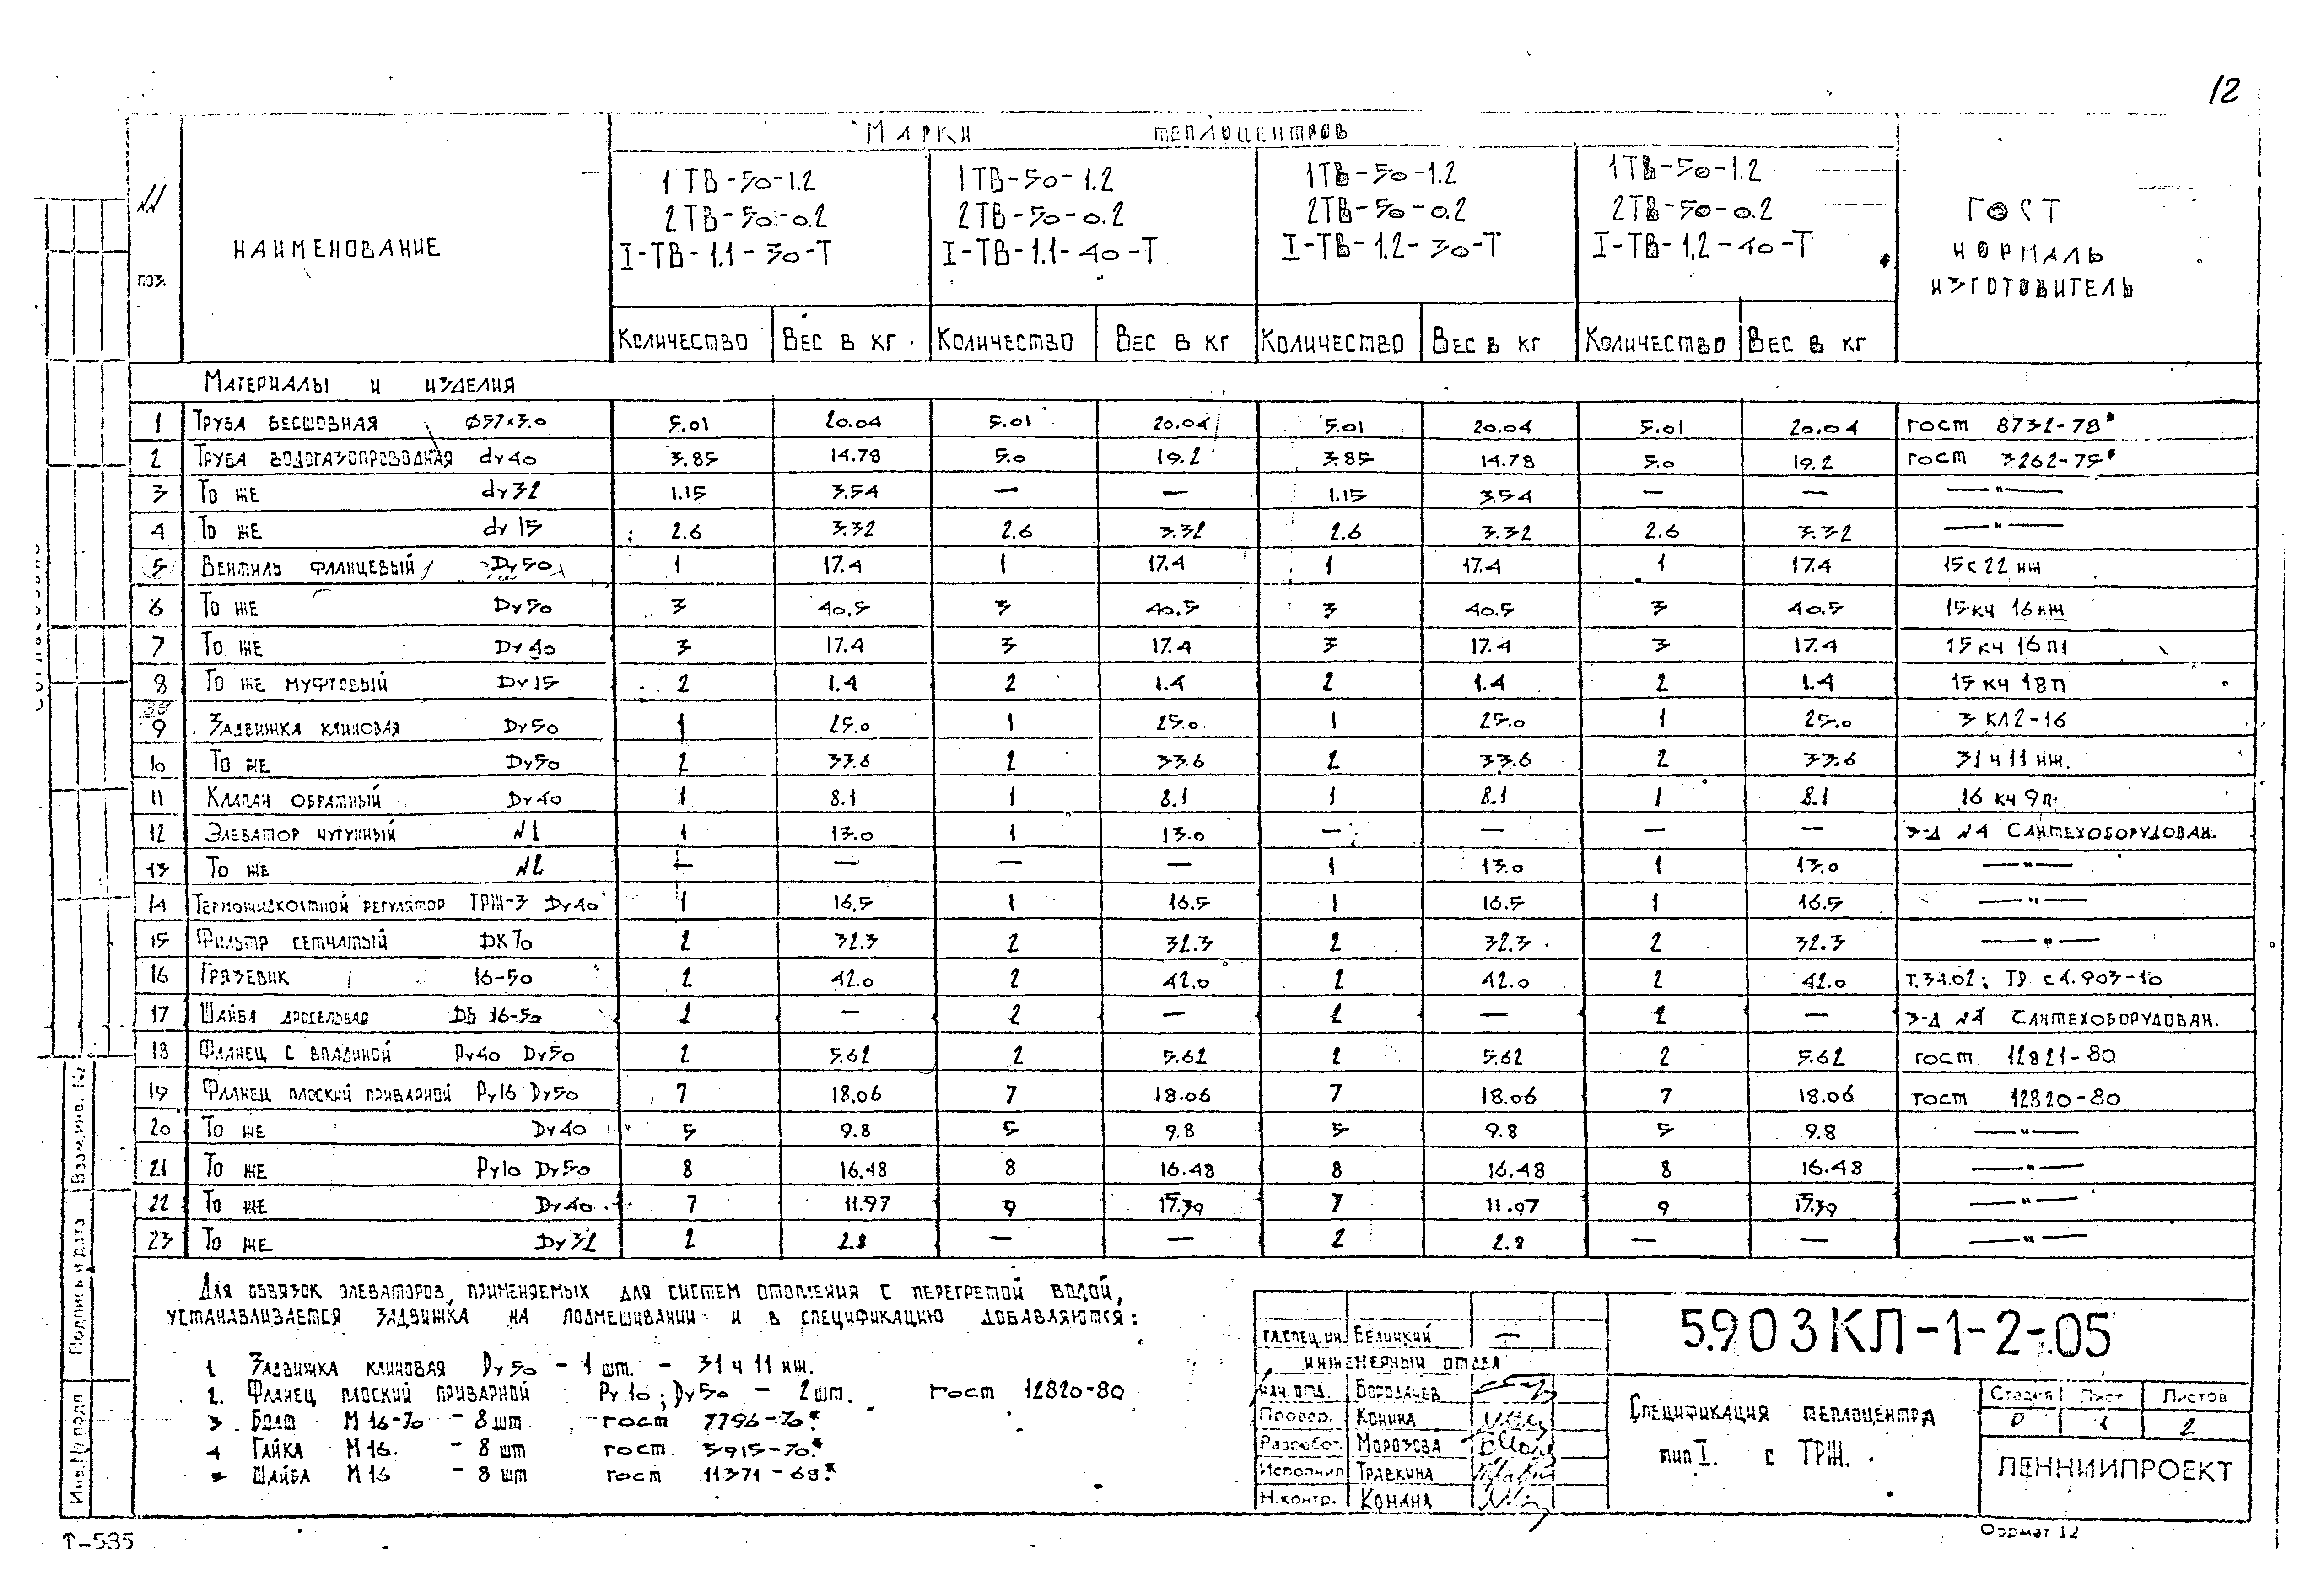 12
Марки теплоцентров
NN поз.
Наименование
1ТВ-50-1.2 1ТВ-50-1.2 1ТВ-50-1.2 1ТВ-50-1.2
2ТВ-50-0.2 2ТВ-50-0.2 2ТВ-50-0.2 2ТВ-50-0.2
I-ТВ-1.1-30-Т I-ТВ-1.1-40-Т I-ТВ-1.2-30-Т I-ТВ-1.2-40-Т
ГОСТ
нормаль
изготовитель
Количество Вес в кг Количество Вес в кг Количество Вес в кг Количество Вес в кг
Материалы и изделия
1 Труба бесшовная ф57×3.0 5.01 20.04 5.01 20.04 5.01 20.04 5.01 20.04 гост 8732-78*
2 Труба водогазопроводная dу40 3.85 14.78 5.0 19.2 3.85 14.78 5.0 19.2 гост 3262-75*
3 То же dу32 1.15 3.54 — — 1.15 3.54 — — —"—
4 То же dу 15 2.6 3.32 2.6 3.32 2.6 3.32 2.6 3.32 —"—
5 Вентиль фланцевый Dу50 1 17.4 1 17.4 1 17.4 1 17.4 15с22нж
6 То же Dу50 3 40.5 3 40.5 3 40.5 3 40.5 15кч 16нж
7 То же Dу40 3 17.4 3 17.4 3 17.4 3 17.4 15кч 16п1
8 То же муфтовый Dу15 2 1.4 2 1.4 2 1.4 2 1.4 15кч 18п
9 Задвижка клиновая Dу50 1 25.0 1 25.0 1 25.0 1 25.0 3КЛ2-16
10 То же Dу50 2 33.6 2 33.6 2 33.6 2 33.6 31ч11нж.
11 Клапан обратный Dу40 1 8.1 1 8.1 1 8.1 1 8.1 16кч9п
12 Элеватор чугунный N1 1 13.0 1 13.0 — — — — з-д N4 Сантехоборудован.
13 То же N2 — — — — 1 13.0 1 13.0 —"—
14 Терможидкостной регулятор ТРЖ-3 Dу40 1 16.5 1 16.5 1 16.5 1 16.5 —"—
15 Фильтр сетчатый DК70 2 32.3 2 32.3 2 32.3 2 32.3 —"—
16 Грязевик 16-50 2 42.0 2 42.0 2 42.0 2 42.0 Т.34.02; ТД с4.903-10
17 Шайба дроселовая DБ 16-50 2 — 2 — 2 — 2 — з-д N4 Сантехоборудован.
18 Фланец с впадиной Ру40 Dу50 2 5.62 2 5.62 2 5.62 2 5.62 гост 12821-80
19 Фланец плоский приварной Ру16 Dу50 7 18.06 7 18.06 7 18.06 7 18.06 гост 12820-80
20 То же Dу40 5 9.8 5 9.8 5 9.8 5 9.8 —"—
21 То же Ру10 Dу50 8 16.48 8 16.48 8 16.48 8 16.48 —"—
22 То же Dу40 7 11.97 9 15.39 7 11.97 9 15.39 —"—
23 То же Dу32 2 2.8 — — 2 2.8 — — —"—
Для обвязок элеваторов, применяемых для систем отопления с перегретой водой,
устанавливается задвижка на подмешивании и в спецификацию добавляются:
1. Задвижка клиновая Dу50 - 1 шт. - 31ч11нж.
2. Фланец плоский приварной Ру10; Dу50 - 2шт. гост 12820-80
3 Болт М16-70 - 8 шт гост 7796-70*
4 Гайка М16. - 8 шт гост 5915-70*
5 Шайба М16 - 8 шт гост 11371-68*
Взам.инв. №
Подпись и дата
Инв.№ подл
Гл.спец.ин. Белинкий
инженерный отдел
Нач.отд. Бородачев
Провер. Конина
Разработ. Морозова
Исполнил Травкина
Н.контр. Конина
5.903КЛ-1-2-.05
Спецификация теплоцентра
тип I. с ТРЖ.
Стадия Лист Листов
Р 1 2
ЛЕННИИПРОЕКТ
Т-585
Формат 12